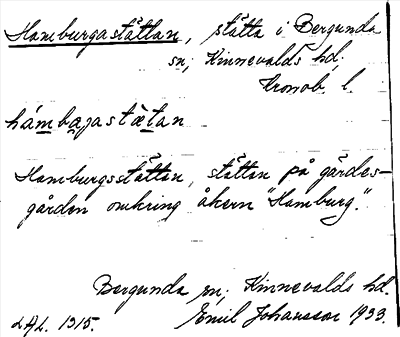 Hamburgastättan, stätta i Bergunda
sn; Kinnevalds hd;
Kronob. l.
hámbajastætan
Hamburgsstättan, stättan på gärdes-
gården omkring åkern "Hamburg".
Bergunda sn; Kinnevalds hd.
LAL. 1315. Emil Johansson 1933.